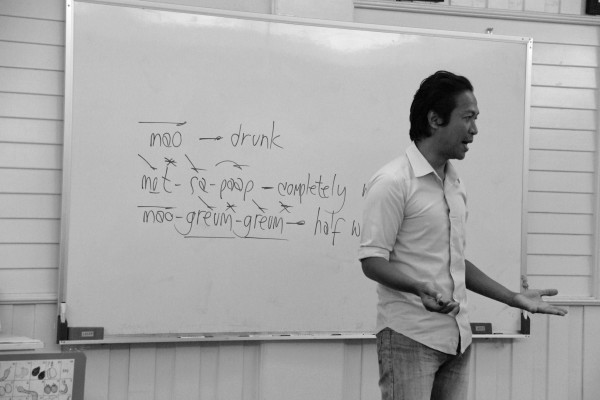 mao → drunk
mot - sa - paap - completely
mao - greum - greum → half w